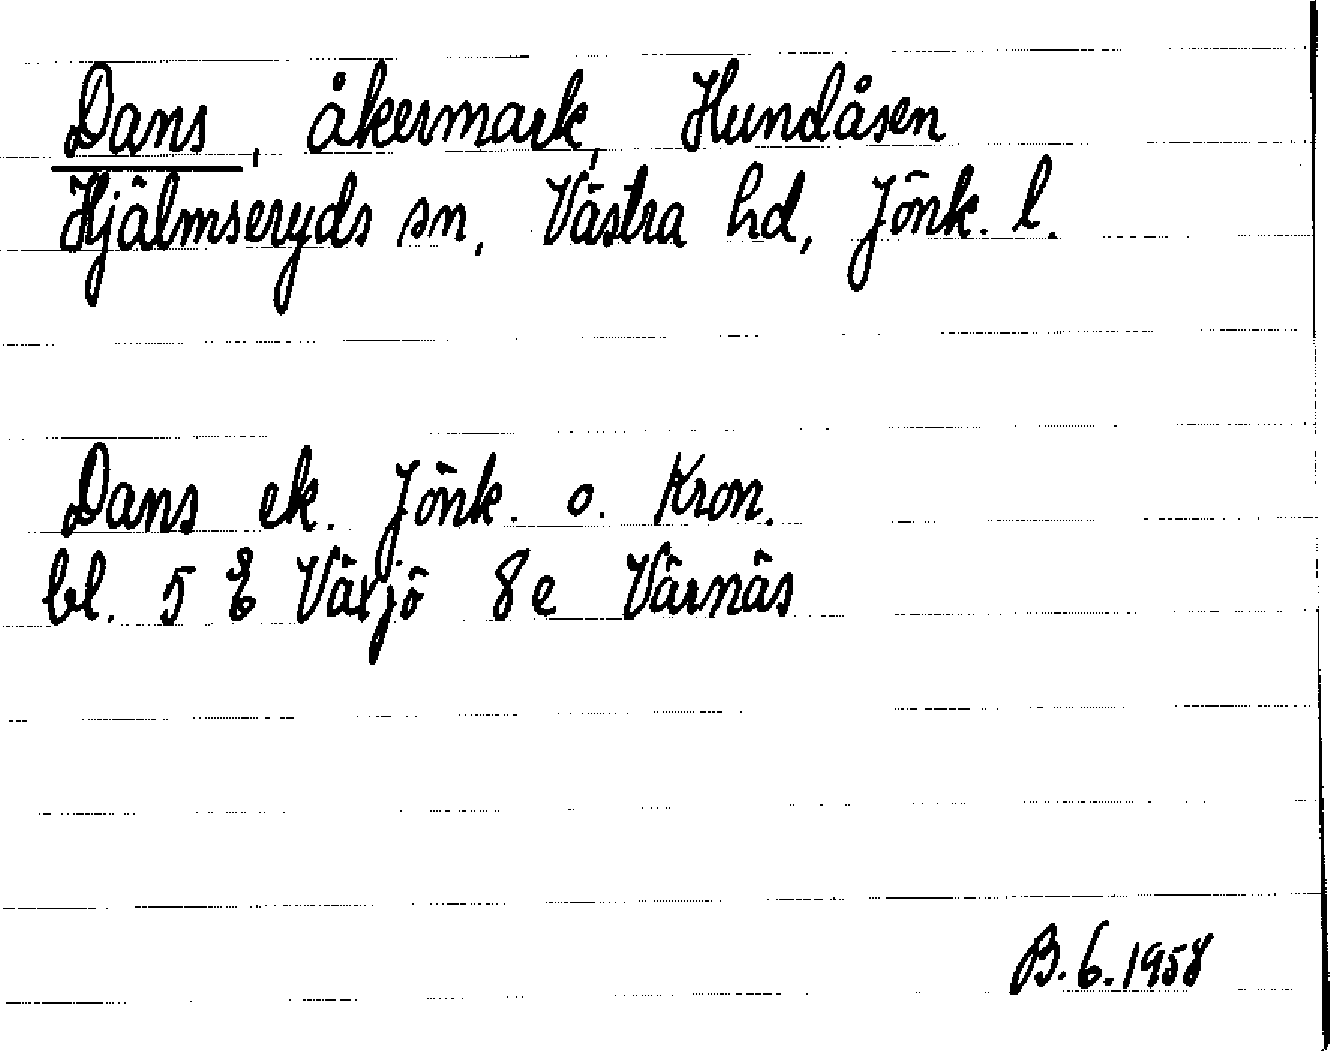 Dans, åkermark, Hundåsen
Hjälmseryds sn, Västra hd, Jönk. l.
Dans ek. Jönk. o. Kron.
bl. 5 E Växjö 8e Värnäs
B.6.1958